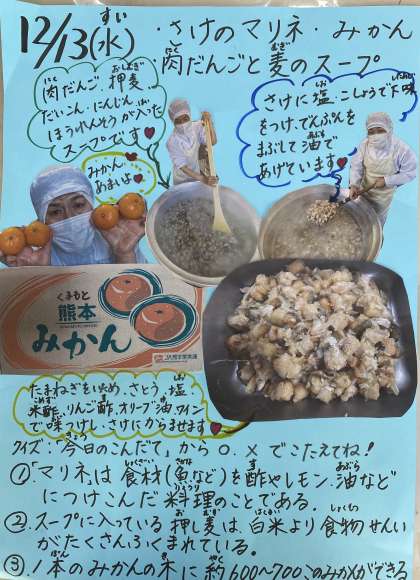 12/13(水)
・さけのマリネ・みかん
肉だんごと麦のスープ
肉だんご、押麦、
だいこん・にんじん、
ほうれんそうが入った
スープです
みかん
あまいよ
さけに塩、こしょうで下味
をつけ、でんぷんを
まぶして油で
あげています
くまもと
熊本
みかん
たまねぎをいため、さとう、塩、
米酢、りんご酢、オリーブ油、ワイン
で味つけし、さけにからませます
クイズ:今日のこんだて」から○、×でこたえてね!
①「マリネ」は食材(魚など)を酢やレモン、油など
につけこんだ料理のことである。
②スープに入っている押し麦は、白米より食物せんい
がたくさんふくまれている。
③1本のみかんの木に約600~700このみかんができる